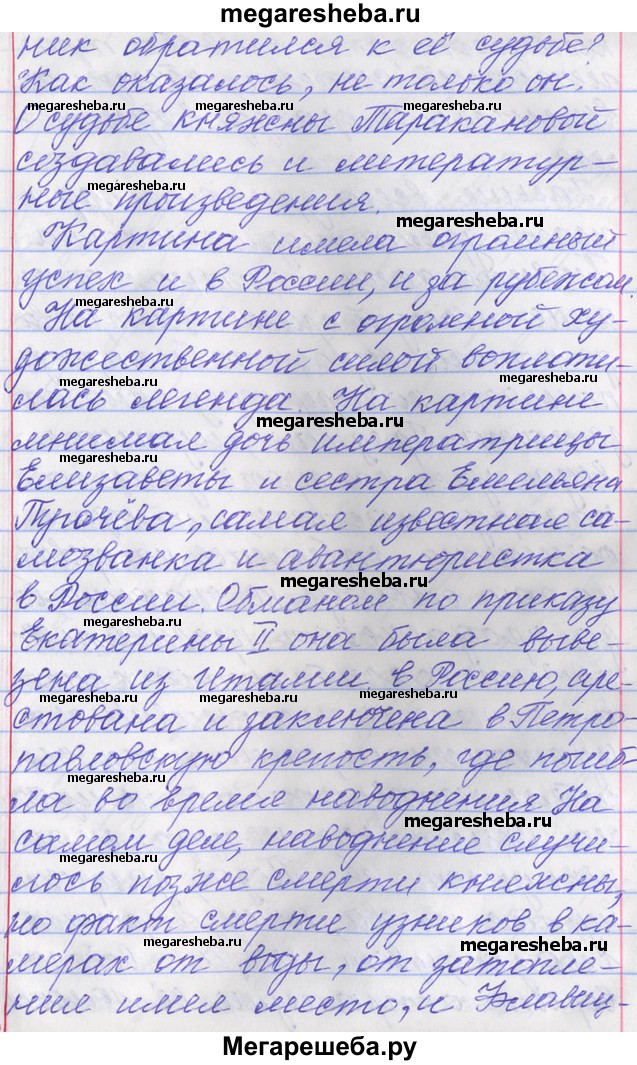 megaresheba.ru
ник обратился к её судьбе?
Как оказалось, не только он.
megaresheba.ru
megaresheba.ru
О судьбе княжны Таракановой
создавались и литератур-
megaresheba.ru
ные произведения.
megaresheba.ru
Картина имела огромный
успех и в России, и за рубежом.
megaresheba.ru
megaresheba.ru
На картине с огромной ху-
дожественной силой воплоти-
megaresheba.ru
megaresheba.ru
лась легенда. На картине
megaresheba.ru
мнимая дочь императрицы
megaresheba.ru
Елизаветы и сестра Емельяна
Пугачёва, самая известная са-
мозванка и авантюристка
megaresheba.ru
в России. Обманом по приказу
megaresheba.ru
Екатерины II она была выве-
зена из Италии в Россию, аре-
megaresheba.ru
megaresheba.ru
megaresheba.ru
стована и заключена в Петро-
павловскую крепость, где погиб-
megaresheba.ru
ла во время наводнения. На
megaresheba.ru
самом деле, наводнение случи-
megaresheba.ru
лось позже смерти княжны,
но факт смерти узников в ка-
megaresheba.ru
megaresheba.ru
мерах от воды, от затопле-
ния имел место, и Флавиц-
Мегарешеба.ру